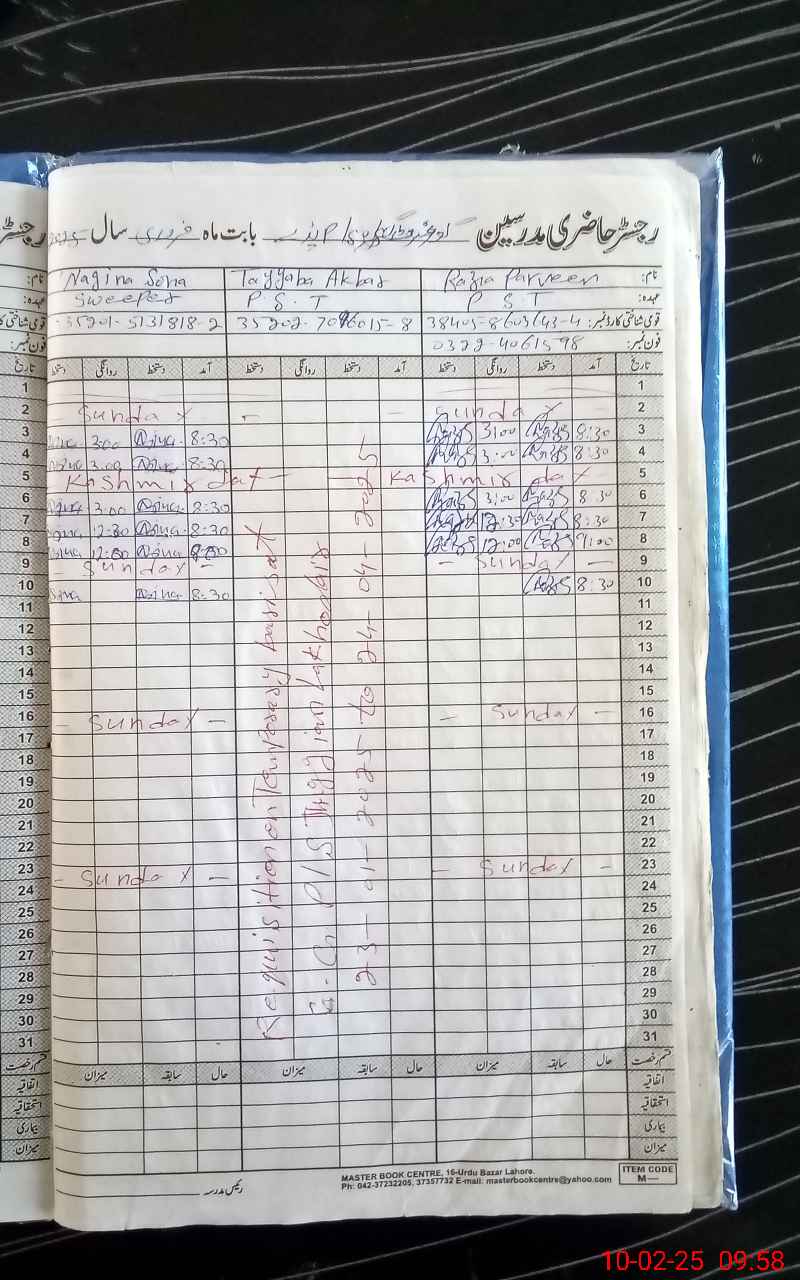 رجسٹر حاضری مدرسین بابت ماہ فروری سال 2025
نام: Razia Parveen Tayyaba Akbar Nagina Sona
عہدہ: P.S.T P.S.T Sweeper
قومی شناختی کارڈ نمبر: 35202-7096015-8 35201-5131818-2
فون نمبر: 0322-4061598
تاریخ آمد دستخط روانگی دستخط آمد دستخط روانگی دستخط آمد دستخط روانگی دستخط
1
2 Sunday Sunday
3 8:30 3:00 8:30 3:00
4 8:30 3:00 8:30 3:00
5 Kashmir day Kashmir day
6 8:30 3:00 8:30 3:00
7 8:30 12:30 8:30 12:30
8 9:00 12:00 12:00
9 Sunday Sunday
10 8:30 8:30
11
12
13
14
15
16 Sunday Sunday
17
18
19
20
21
22
23 Sunday Sunday
24
25
26
27
28
29
30
31
Requisition on Temporary basis at
G.G P/S Jhggian
23-01-2025 to 24-04-2025
قسم رخصت حال سابقہ میزان حال سابقہ میزان حال سابقہ میزان
اتفاقیہ
استحقاقیہ
بیماری
میزان
رئیس مدرسہ
MASTER BOOK CENTRE, 16-Urdu Bazar Lahore.
Ph: 042-37232205, 37357732 E-mail: masterbookcentre@yahoo.com
ITEM CODE
M—
10-02-25 09:58